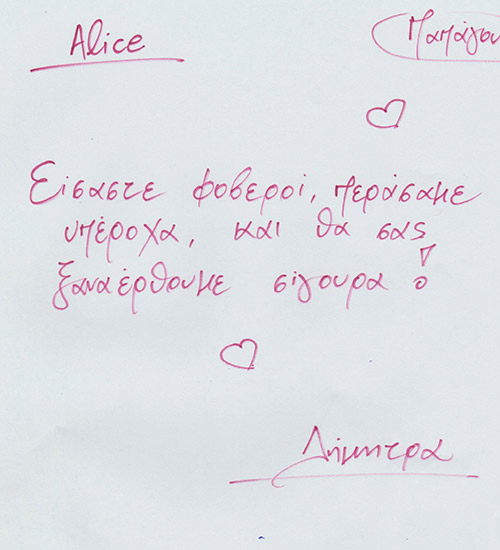 Alice
Παπάγου
Είσαστε φοβεροί, περάσαμε
υπέροχα, και θα σας
ξαναέρθουμε σίγουρα!
Δήμητρα